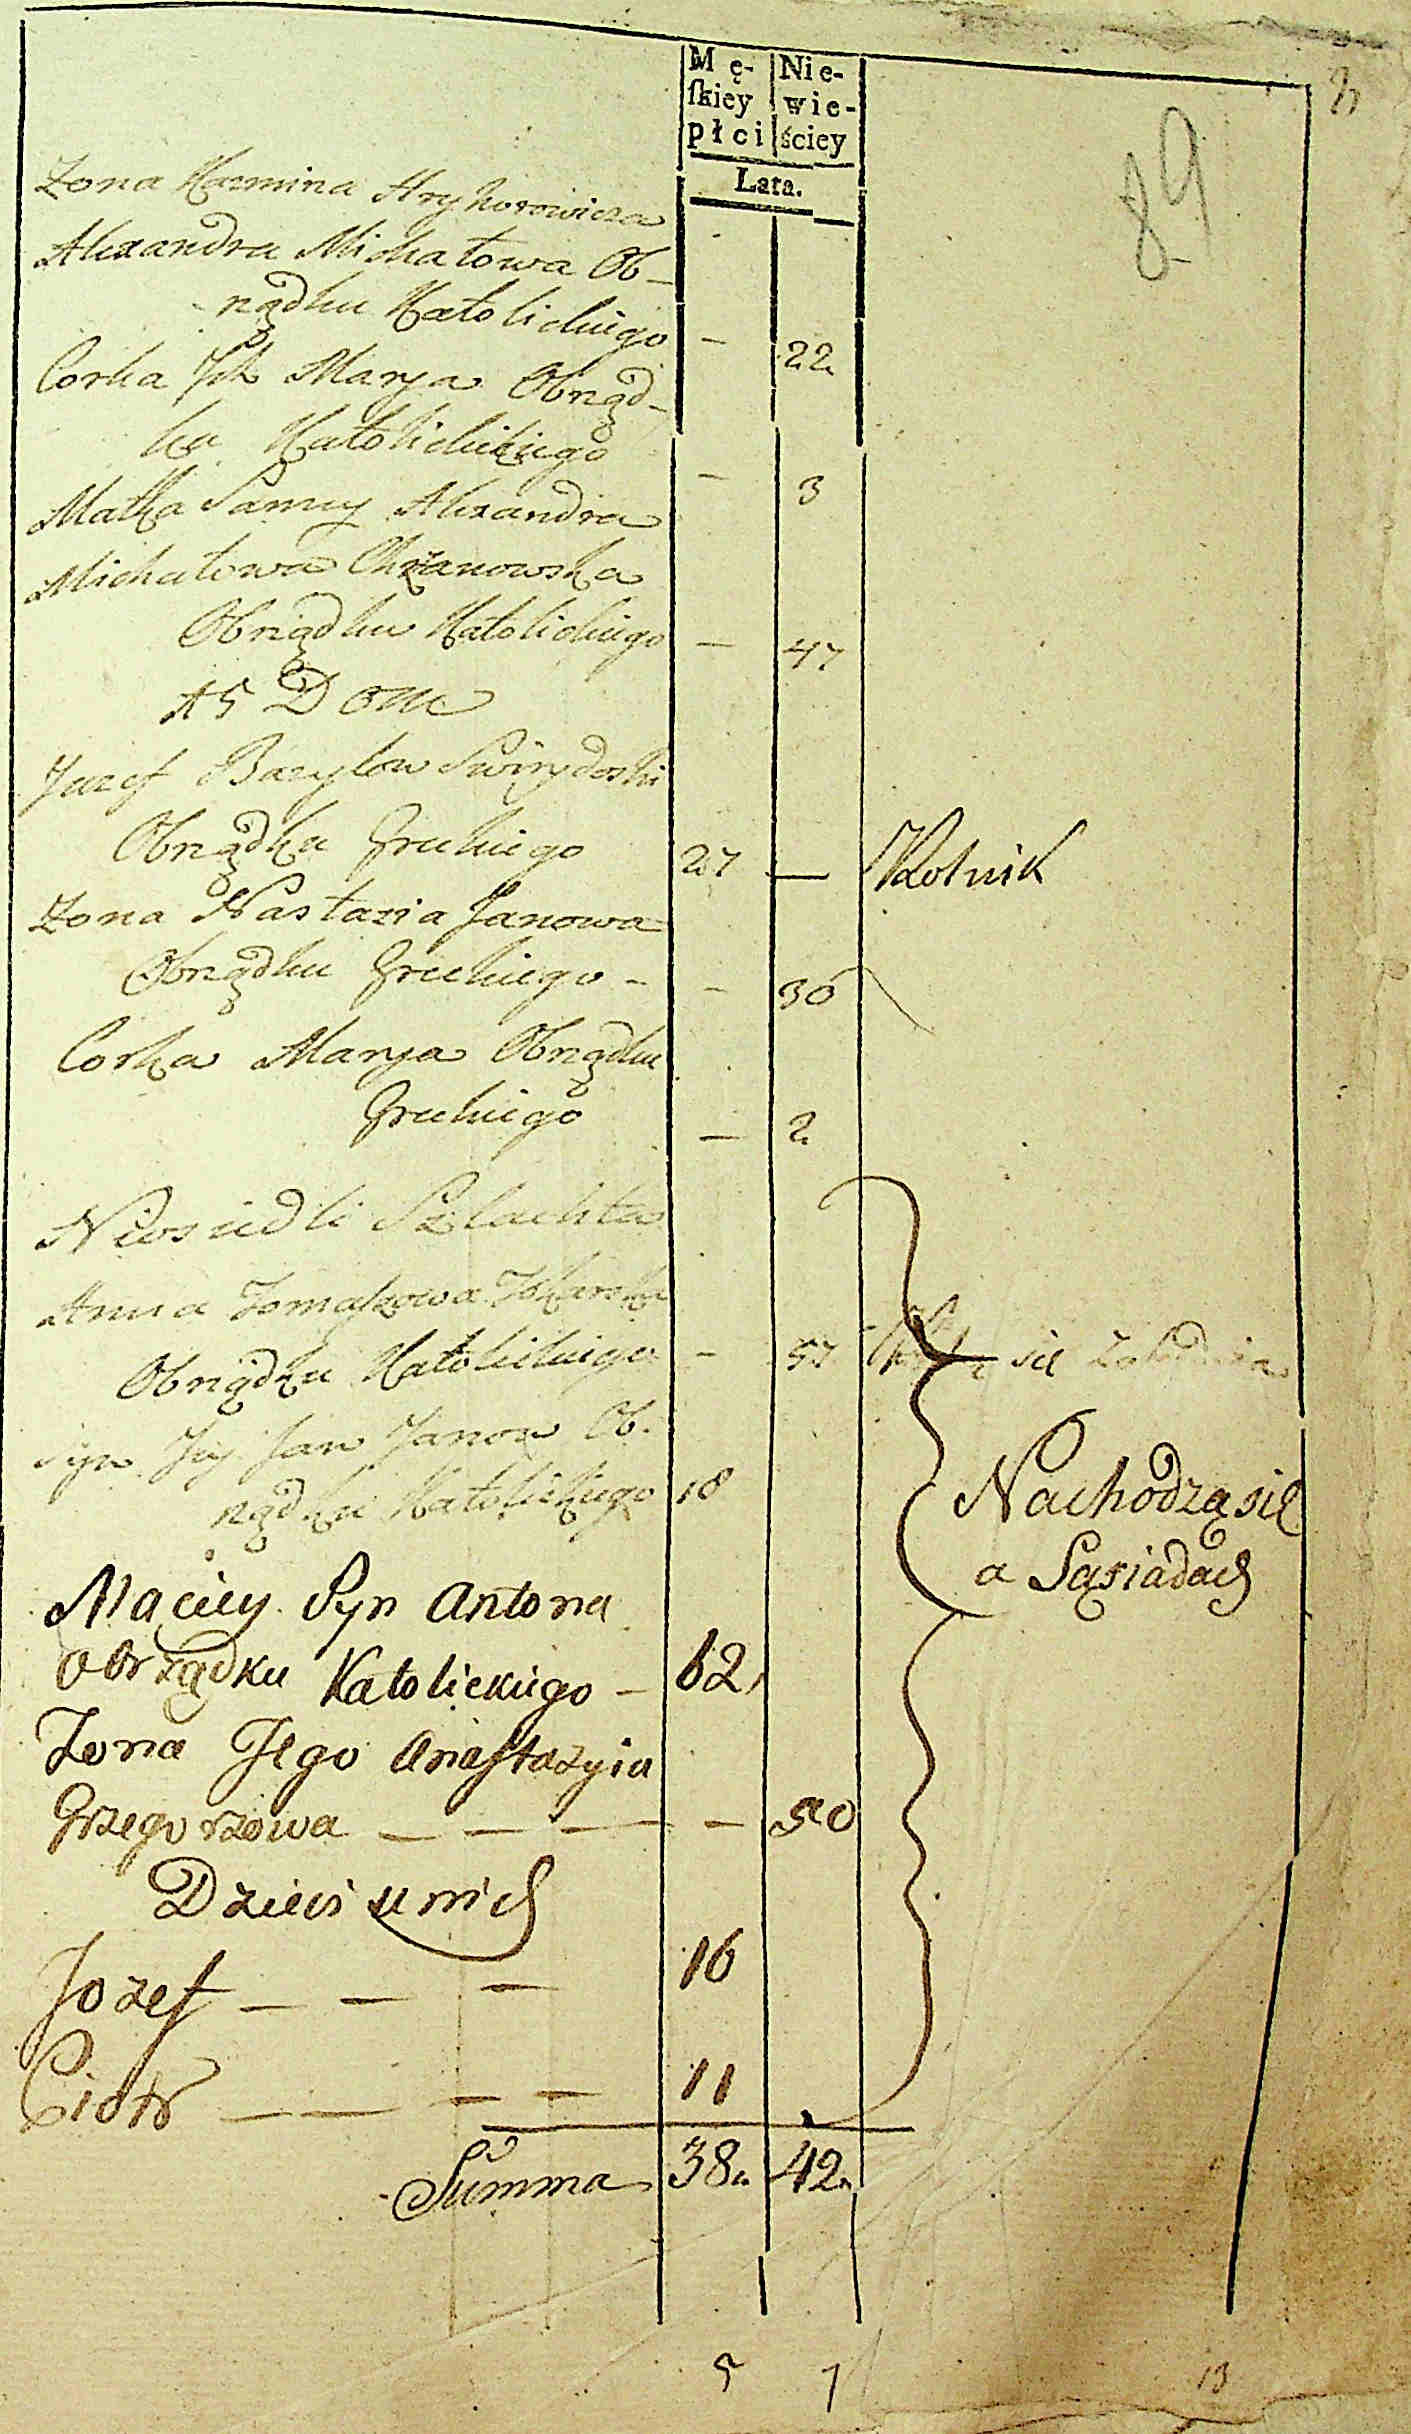 Mę- Nie-
ſkiey wie-
płci ściey
Lata.
89
Zona Karmina Hryhorowicza
Alexandra Michałowa Ob-
rządku Katolickiego - 22
Corka Ich Marya Obrząd-
ku Katolickiego - 3
Matka Samey Alexandra
Michałowa Chrzanowska
Obrządku Katolickiego - 47
15 Dom
Jozef Bazylow Swirydoski
Obrządku Greckiego 27 — Rolnik
Zona Nastazia Janowa
Obrządku Greckiego - - 30
Corka Marya Obrządku
Greckiego - 2
Nieosiedli Szlachta
Anna Tomaszowa
Obrządku Katolickiego - 57 się
Syn Jey Jan Janow Ob.
rządku Katolickiego 18
Nachodzą się
a Sąsiadach
Maciey Syn Antona
Obrządku Katolickiego - 62
Zona Jego Anastazyia
Grzegorzowa — — — — 50
Dzieci u nich
Jozef — — — 16
Piotr — — — — 11
Summa 38. 42.
5 7 13